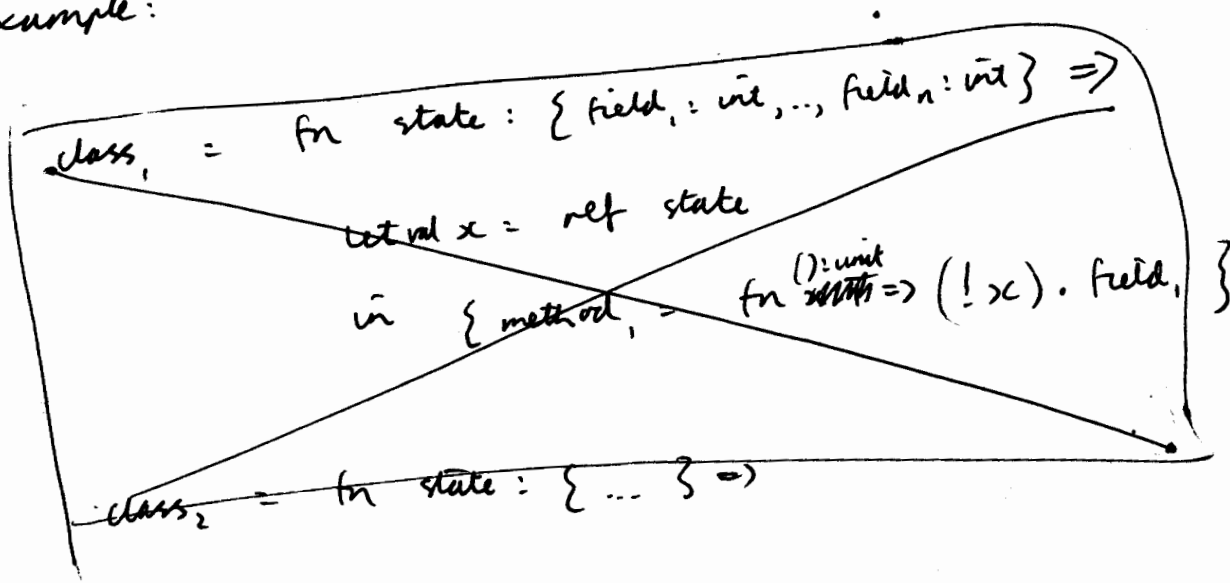 xample:
class₁ = fn state : { field₁ : int, .., fieldₙ : int } =>
let val x = ref state
in { method₁ = fn () : unit => (! x) . field₁ }
class₂ = fn state : { ... } =>